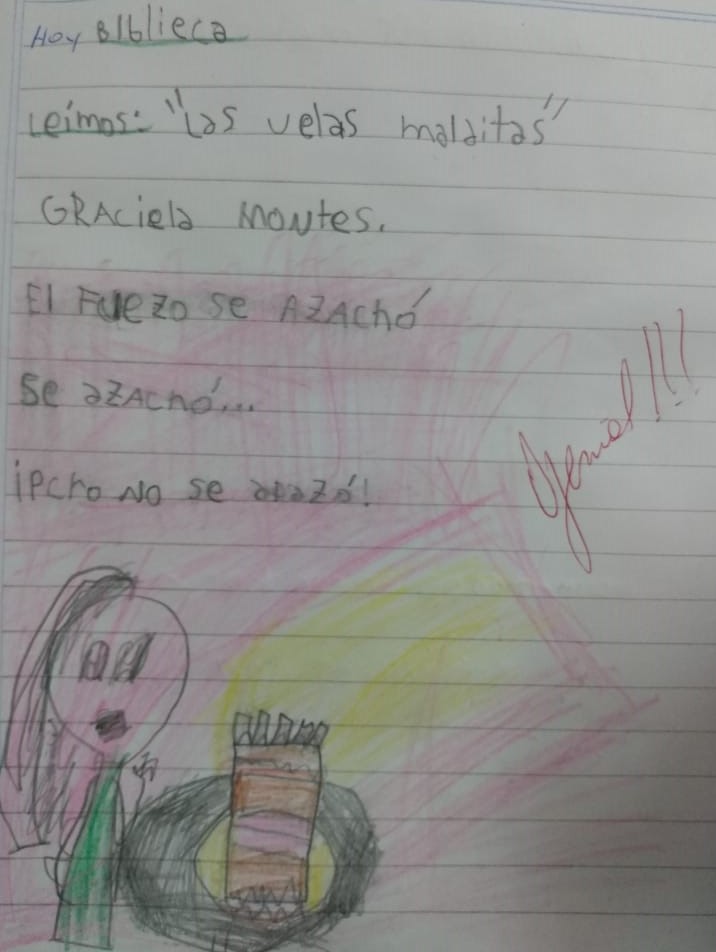 Hoy Biblieca
Leímos: "Las velas malditas"
GRACiela MONtes.
El FUEZO se AZAChó
se azAChó...
¡Pero NO se apazó!
Genial!!!